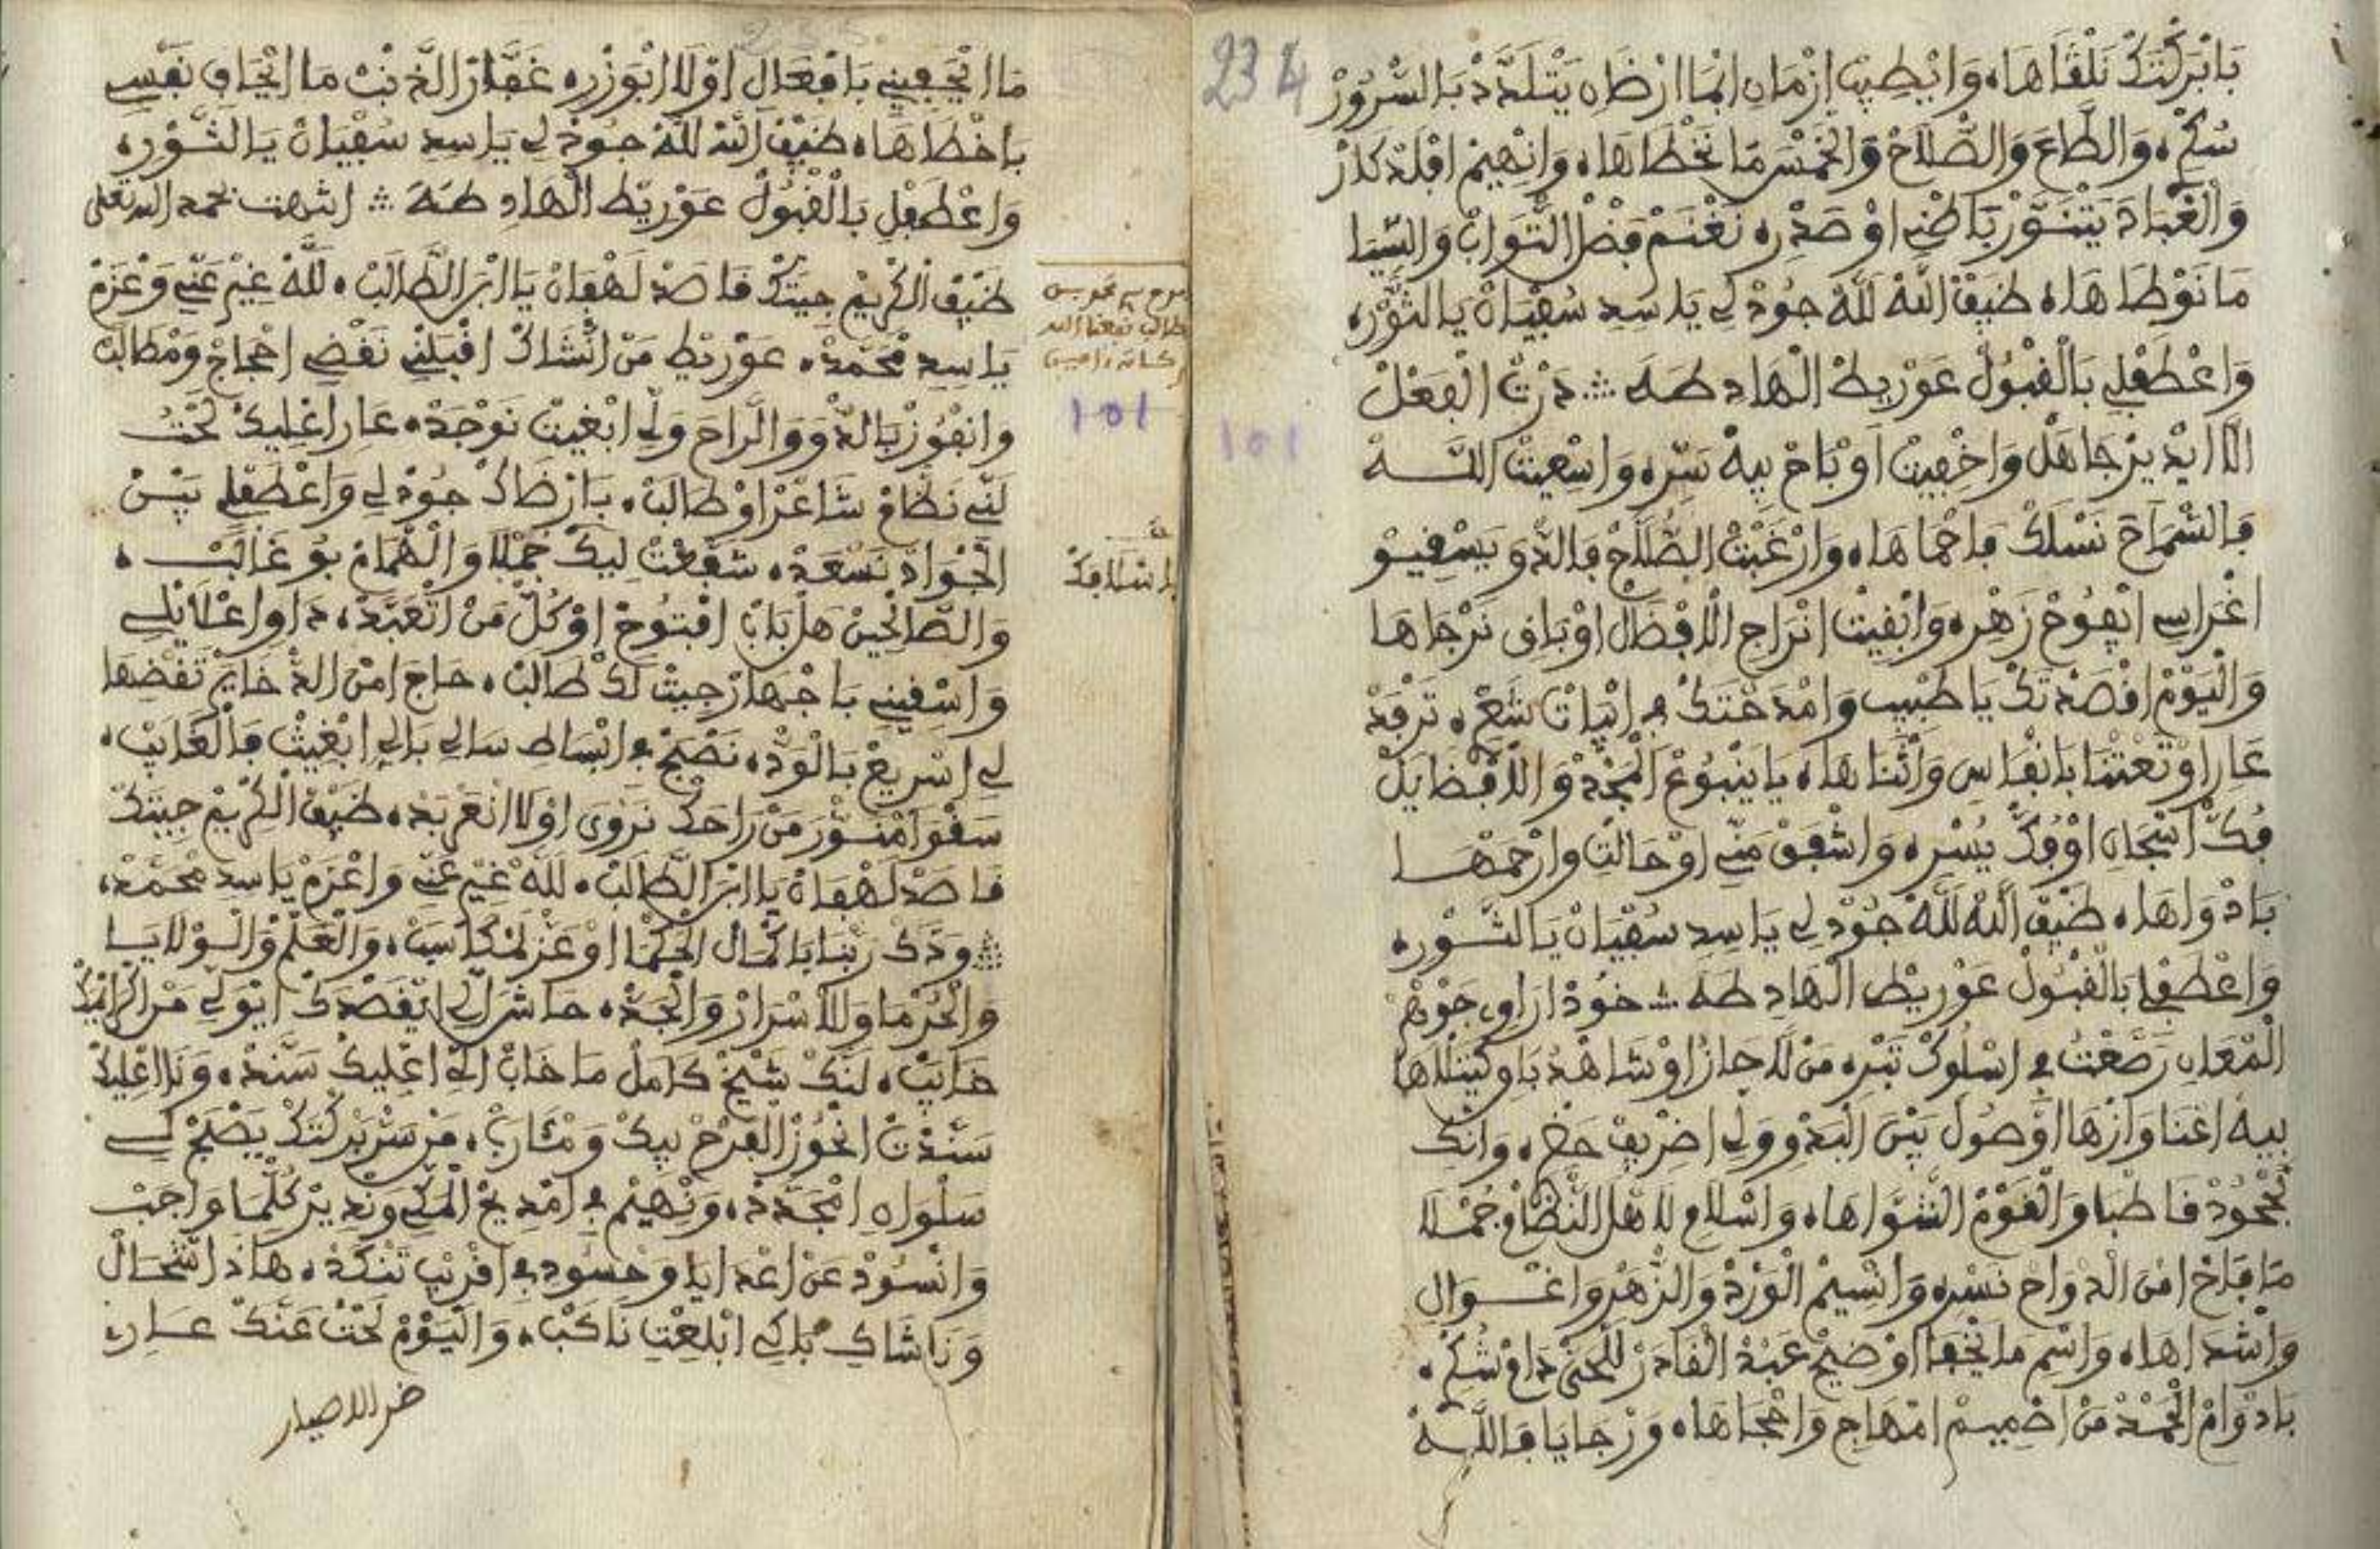 234
بَابْرَكْتَكْ نَلْقَاهَا، وَايْطِيبْ ازْمَانِ ابْمَا ارْضَاهْ يَتْلَدَّدْ بَالسُّرُورْ
سُكْرِ، وَالطَّاعَ وَالصْلَاحْ وَالْخَمْسْ مَا نَخْطَاهَا، وَانْهِيمْ افْلَدْكَارْ
وَالْعْبَادَ يَتْنَوَّرْ بَاطْنِي اوْ صَدْرِ، نَغْنَمْ فَضْلْ التَّوَابْ وَالسِّيَا
مَا نَوْطَاهَا، ضَيْفْ اللَّهْ لِلَّهْ جُودْ لِي يَا سِيدِ سُفْيَانْ يَا الثَّوْرِ،
وَاعْطَفْلِي بَالْقْبُولْ عَوْرِيطْ الْهَادِ طَهَ ۞ دَرْتْ الْفَعْلْ
الَّا ايْدِيرْ جَاهَلْ وَاخْفِيتْ اوْ بَاحْ بِيهْ سَرِّ، وَاسْعِيتْ اللَّهْ
فَالسْمَاحَ نَسْلَكْ فَاحْمَاهَا، وَارْغَبْتْ الصْلَاحْ فَالدْوَ يَسْقِيوْ
اغْرَاسِي ايْفُوحْ زَهْرِ، وَابْقِيتْ انْرَاجِ الْافْضَالْ اوْ بَاقِ نَرْجَاهَا
وَالْيَوْمْ اقْصَدْتَكْ يَا طْبِيبْ وَامْدَحْتَكْ فِ ابْيَاتْ شَعْرِ، تَرْفَدْ
عَارِ اوْ تَعْتْنَا بَانْفَاسِ وَاثْنَاهَا، يَا يَنْبُوعْ الْمَجْدْ وَالْافْضَايَلْ
فُكّْ اسْجَانِ اوْ فُكّْ يُسْرِ، وَاشْفَقْ مَنِّي اوْ حَالْتِي وَارْحَمْهَا
بَادْوَاهَا، ضَيْفْ اللَّهْ لِلَّهْ جُودْ لِي يَا سِيدِ سُفْيَانْ يَا الثَّوْرِ،
وَاعْطَفْلِي بَالْقْبُولْ عَوْرِيطْ الْهَادِ طَهَ ۞ خُودْ ارَاوِي جَوْهَرْ
الْمْعَانِ رَصَّعْتُ فِ اسْلُوكْ تَبْرِ، مَنْ لَا جَازْ اوْ شَاهْدُ بَاوْكِيتْلَاهَا
بِيهْ اغْنَا وَازْهَا اوْصُولْ بَيْنْ الْبَدْوِ وَلِي احْضَرِ، وَانْكِ
لَجْحُودْ قَاطْبَا وَالْقَوْمْ السْوَاهَا، وَاسْلَامِ لَاهْلْ النْظَامْ جُمْلَا
مَا فَاحْ امْنْ الدْوَاحْ نَسْرِ، وَانْسِيمْ الْوَرْدْ وَالزْهَرْ وَاغْوَالِ
وَانْشَدَاهَا، وَاسْمِ مَا يَخْفَا اوْضِيحْ عَبْدْ الْقَادَرْ لَلْحَيّْ دَامْ شُكْرِ،
بَادْوَامْ الْحَمْدْ مَنْ اصْمِيمْ امْهَاجِ وَاحْجَاهَا، وَرْجَايَا فَاللَّهْ
مَا ايْجَفِينِي بَافْعَالِ اوْلَا ابْوَزْرِ، غَفَّارْ الذَّنْبْ مَا ايْجَافِ نَفْسِي
بَاخْطَاهَا، ضَيْفْ اللَّهْ لِلَّهْ جُودْ لِي يَا سِيدِ سُفْيَانْ يَا الثَّوْرِ،
وَاعْطَفْلِي بَالْقْبُولْ عَوْرِيطْ الْهَادِ طَهَ ۞ انتهت بحمد الله تعلى
ضَيْفْ الْكْرِيمْ جِيتَكْ قَاصَدْ لَهْفَانْ يَا ابْنْ الطَّالَبْ، لِلَّهْ غِيرْ عَنِّي وَعْزَمْ
يَا سِيدِ مْحَمَّدْ، عَوْرِيطْ مَنْ انْشَاكْ اقْبَلْنِي نَقْضِي احْجَاجْ وَمْطَالَبْ
وَانْفُوزْ بَالدْوَ وَالرَّاحَ وَلِي ابْغِيتْ نَوْجَدْ، عَارِ اعْلِيكْ لَحْتُ
لَنِّي نَظَّامْ شَاعَرْ اوْ طَالَبْ، بَارْضَاكْ جُودْ لِي وَاعْطَفْلِي بَيْنْ
الْجْوَادْ نَسْعَدْ، شَفَّعْتْ لِيكْ جُمْلَا وَالْهْمَامْ بُوغَالَبْ،
وَالصَّالْحِينْ هَلْ بَابْ افْتُوحْ اوْ كُلّْ مَنْ اتْعَبَّدْ، دَاوِ اعْلَايْلِي
وَاسْقِينِي بَاجْهَارْ جِيتْ لَكْ طَالَبْ، حَاجَ امْنْ الدْخَايَرْ تَقْضِهَا
لِي اسْرِيعْ بَالْوَدّْ، نَصْبَحْ فِ ابْسَاطِ سَالِي بَالِي ابْغِيتْ فَالْغَايَبْ،
سَقْوَا مْنَوّْرَ مَنْ رَاحَكْ نَرْوَى اوْلَا انْعَرْبَدْ، ضَيْفْ الْكْرِيمْ جِيتَكْ
قَاصَدْ لَهْفَانْ يَا ابْنْ الطَّالَبْ، لِلَّهْ غِيرْ عَنِّي وَاعْزَمْ يَا سِيدِ مْحَمَّدْ،
۞ وَدَّكْ رَبْنَا بَاكْمَالْ الْحَكْمَا اوْ عَزّْ لَمْكَاسَبْ، وَالْعَلْمْ وَالْوْلَايَا
وَالْحُرْمَا وَالْاسْرَارْ وَالْجَدّْ، حَاشَا لِي ايْقَصْدَكْ ايْوَلِّي مَنْ اكْرَامَكْ
خَايَبْ، لَنَّكْ شِيخْ كَامَلْ مَا خَابْ الِّي اعْلِيكْ سَنَّدْ، وَنَا اعْلِيكْ
سَنَّدْتْ انْحُوزْ الْفَرْحْ بِيكْ وَمْئَارَبْ، مَنْ سَرّْ بَرْكْتَكْ يَصْبَحْ لِي
سَلْوَانِ امْجَدَّدْ، وَنْهِيمْ فِ امْدِيحْ الْمَكِّي وَنْدِيرْ كُلّْمَا وَاجَبْ
وَانْسُودْ عَنْ اعْدَايَا وَحْسُودِ فِ اقْرِيبْ تَنْكَدْ، هَاذَا اشْحَالْ
وَنَا شَاكِ بَلِي ابْلِعْتِ نَاكَبْ، وَالْيَوْمْ لَحْتْ عَنَّكْ عَارِ
ضر الاصيار
101
101